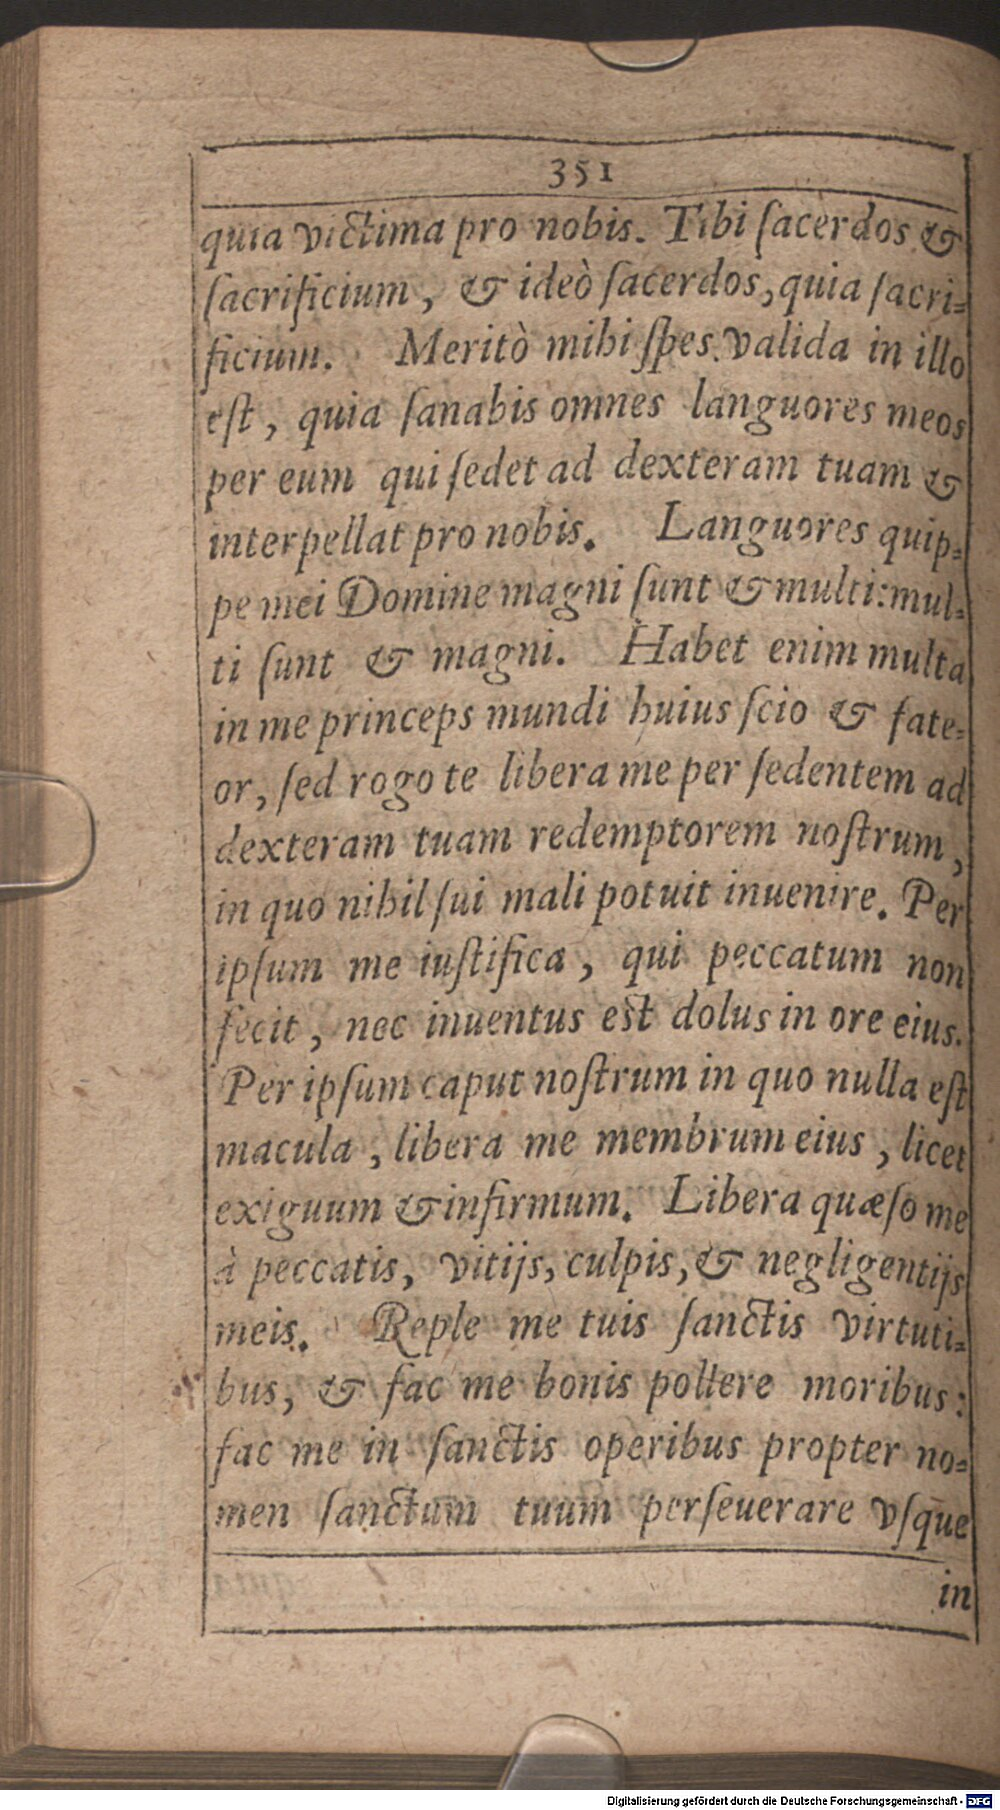 351
quia victima pro nobis. Tibi ſacerdos &
ſacrificium, & ideò ſacerdos, quia ſacri-
ficium. Meritò mihi ſpes valida in illo
eſt, quia ſanabis omnes languores meos
per eum qui ſedet ad dexteram tuam &
interpellat pro nobis. Languores quip-
pe mei Domine magni ſunt & multi: mul-
ti ſunt & magni. Habet enim multa
in me princeps mundi huius ſcio & fate-
or, ſed rogo te libera me per ſedentem ad
dexteram tuam redemptorem noſtrum,
in quo nihil ſui mali potuit inuenire. Per
ipſum me iuſtifica, qui peccatum non
fecit, nec inuentus eſt dolus in ore eius.
Per ipſum caput noſtrum in quo nulla eſt
macula, libera me membrum eius, licet
exiguum & infirmum. Libera quæſo me
à peccatis, vitijs, culpis, & negligentijs
meis. Reple me tuis ſanctis virtuti-
bus, & fac me bonis pollere moribus:
fac me in ſanctis operibus propter no-
men ſanctum tuum perſeuerare vſque
in
Digitalisierung gefördert durch die Deutsche Forschungsgemeinschaft - DFG